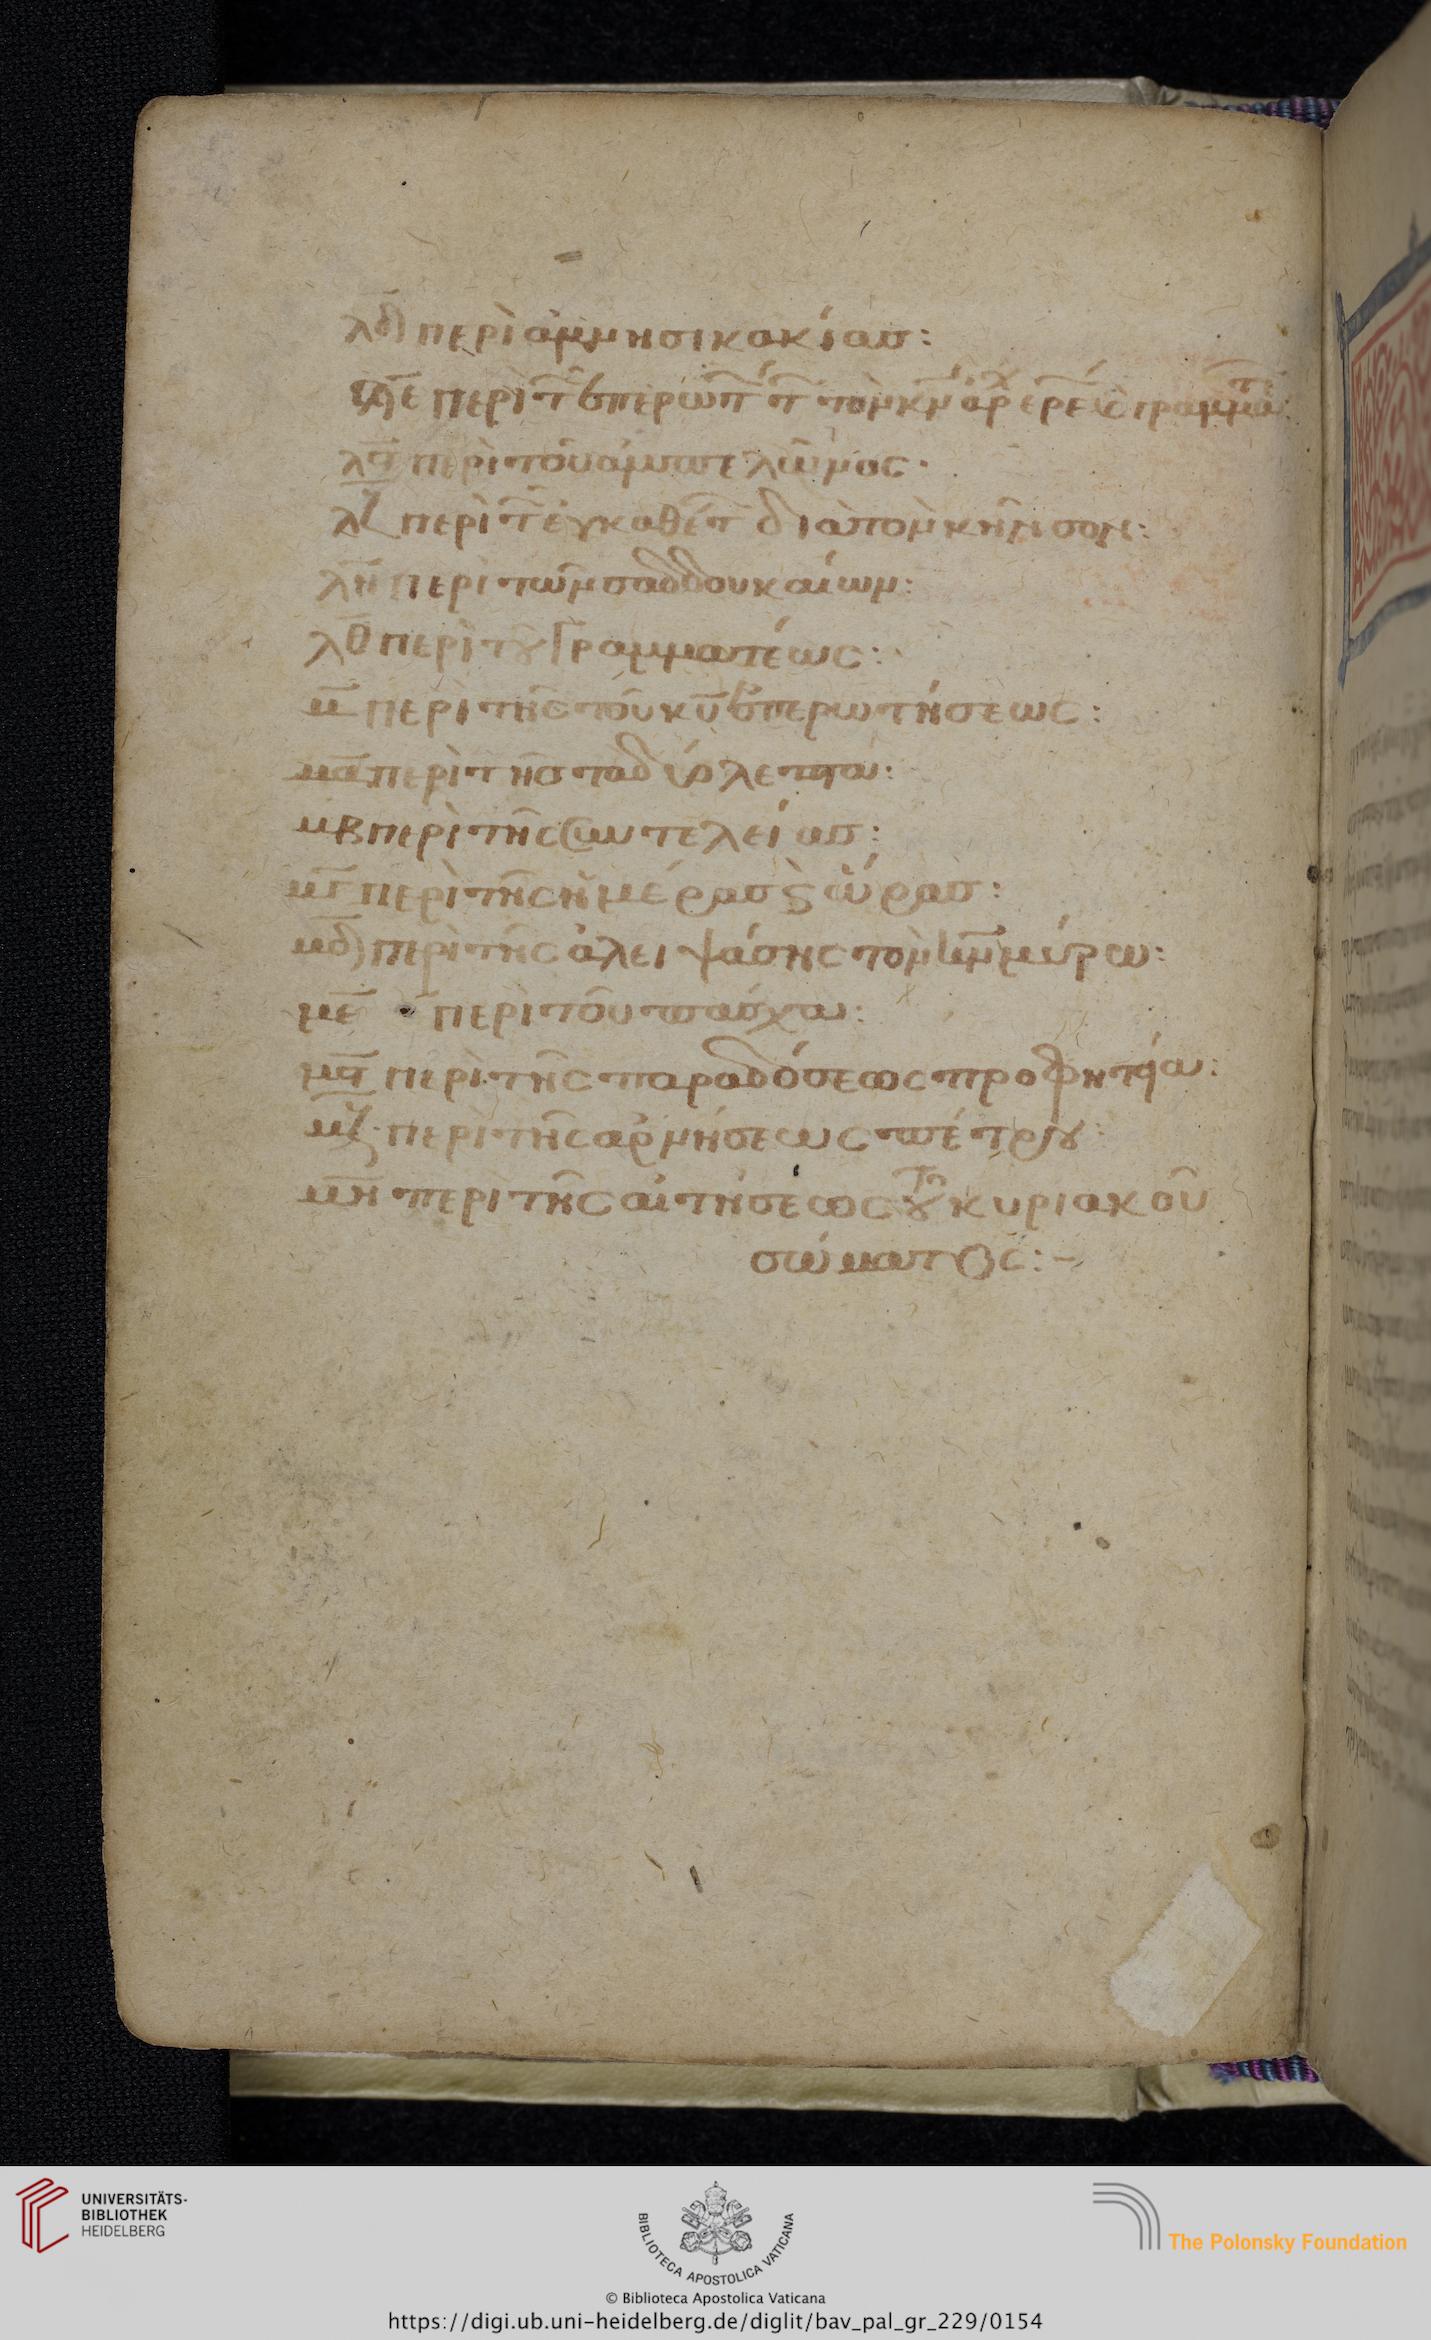 λδ περὶ ἀμνησικακίας:
λε περὶ τ ἐπερωτ τ τὸν κν ἀρχιερε γραμματε
λϛ περὶ τοῦ ἀμπελῶνος·
λζ περὶ τ ἐγκαθέτ διὰ τὸν κῆνσον:
λη περὶ τῶν σαδδουκαίων:
λθ περὶ τȣ γραμματέως:
μ περὶ τῆς τοῦ κυ ἐπερωτήσεως:
μα περὶ τῆς τὰ δύο λεπτά:
μβ περὶ τῆς συντελείας:
μγ περὶ τῆς ἡμέρας ϗ ὥρας:
μδ περὶ τῆς ἀλειψάσης τὸν ιν μύρω:
με περὶ τοῦ πάσχα:
μϛ περὶ τῆς παραδόσεως προφητεία:
μζ περὶ τῆς ἀρνήσεως πέτρȣ:
μη περὶ τῆς αἰτήσεως τȣ κυριακοῦ
σώματος:–
UNIVERSITÄTS-
BIBLIOTHEK
HEIDELBERG
BIBLIOTECA APOSTOLICA VATICANA
The Polonsky Foundation
© Biblioteca Apostolica Vaticana
https://digi.ub.uni-heidelberg.de/diglit/bav_pal_gr_229/0154